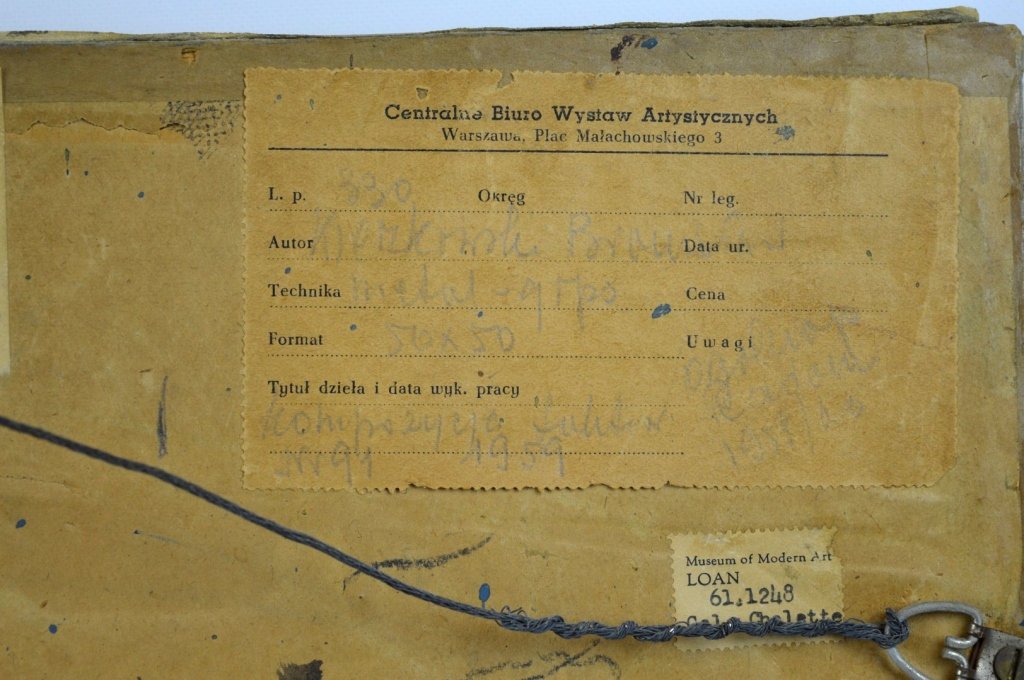 Centralne Biuro Wystaw Artystycznych
Warszawa, Plac Małachowskiego 3
L. p. 330 Okręg Nr leg.
Autor Data ur.
Technika metal - gips Cena
Format 50 x 50 Uwagi
Tytuł dzieła i data wyk. pracy
Kompozycja
Nr 91 1959
Museum of Modern Art
LOAN
61.1248
Chalette